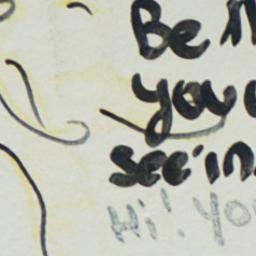 Be
you
seein
Hi! yo